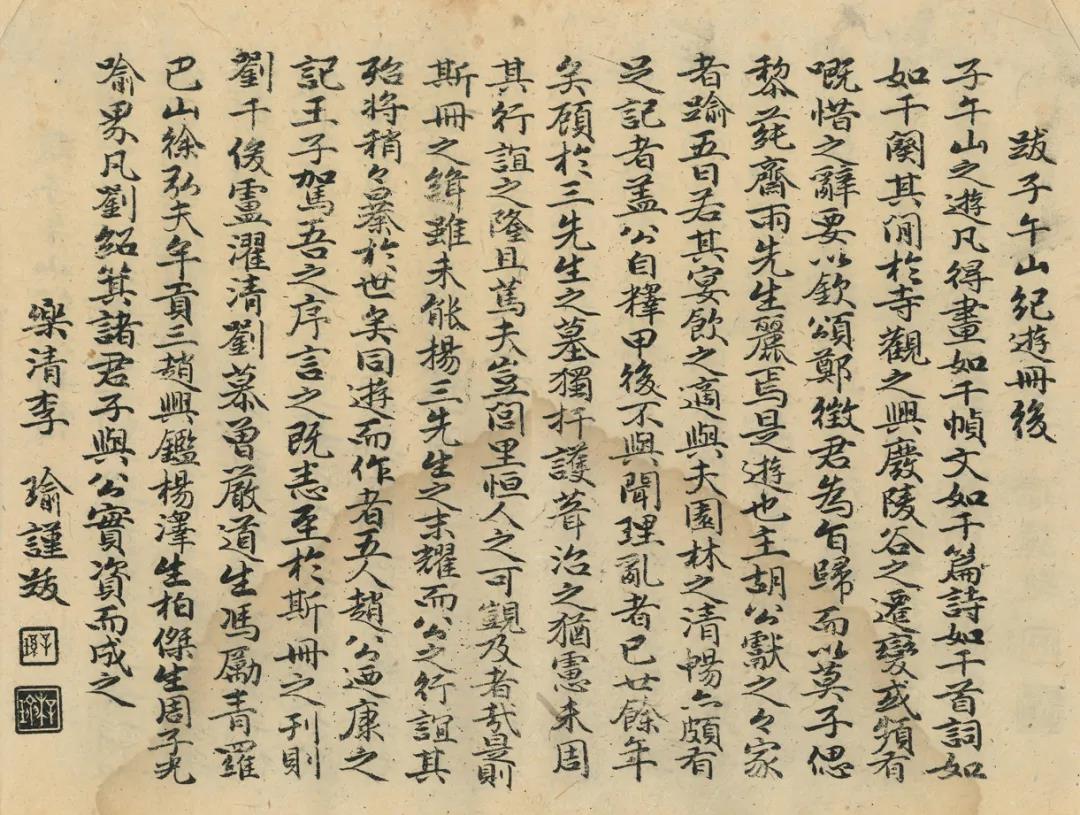 跋子午山紀遊冊後
子午山之遊凡得畫如千幀文如千篇詩如千首詞如
如千闋其間於寺觀之興廢陵谷之遷變或頻有
嘅惜之辭要以欽頌鄭徵君為旨歸而以莫子偲
黎蒓齋兩先生麗焉是遊也主胡公獻之々家
者踰五日若其宴飲之適與夫園林之清暢亦頗有
足記者蓋公自釋甲後不與聞理亂者已廿餘年
矣顧於三先生之墓獨扞護葺治之猶慮未周
其行誼之隆且篤夫豈閭里恒人之可覬及者哉是則
斯冊之緝雖未能揚三先生之末耀而公之行誼其
殆將稍々暴於世矣同遊而作者五人趙公迺康之
記王子駕吾之序言之既悉至於斯冊之刊則
劉千俊盧濯清劉慕曾嚴道生馮勵青羅
巴山徐弘夫牟貢三趙興鑑楊澤生柏傑生周子光
喻界凡劉紹箕諸君子與公實資而成之
樂清李 瑜謹跋